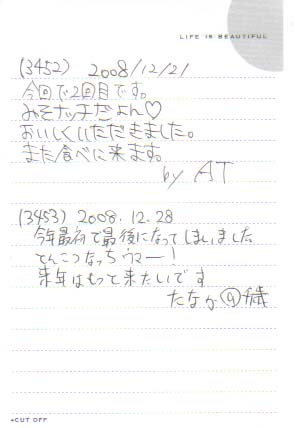 LIFE IS BEAUTIFUL
(3452) 2008/12/21
今回で2回目です。
みそナッチだよん♡
おいしくいただきました。
また食べに来ます。
by AT
(3453) 2008.12.28
今年最初で最後になってしまいました
てんこつなっちウマー!
来年はもっと来たいです
たなか@千歳
◂CUT OFF